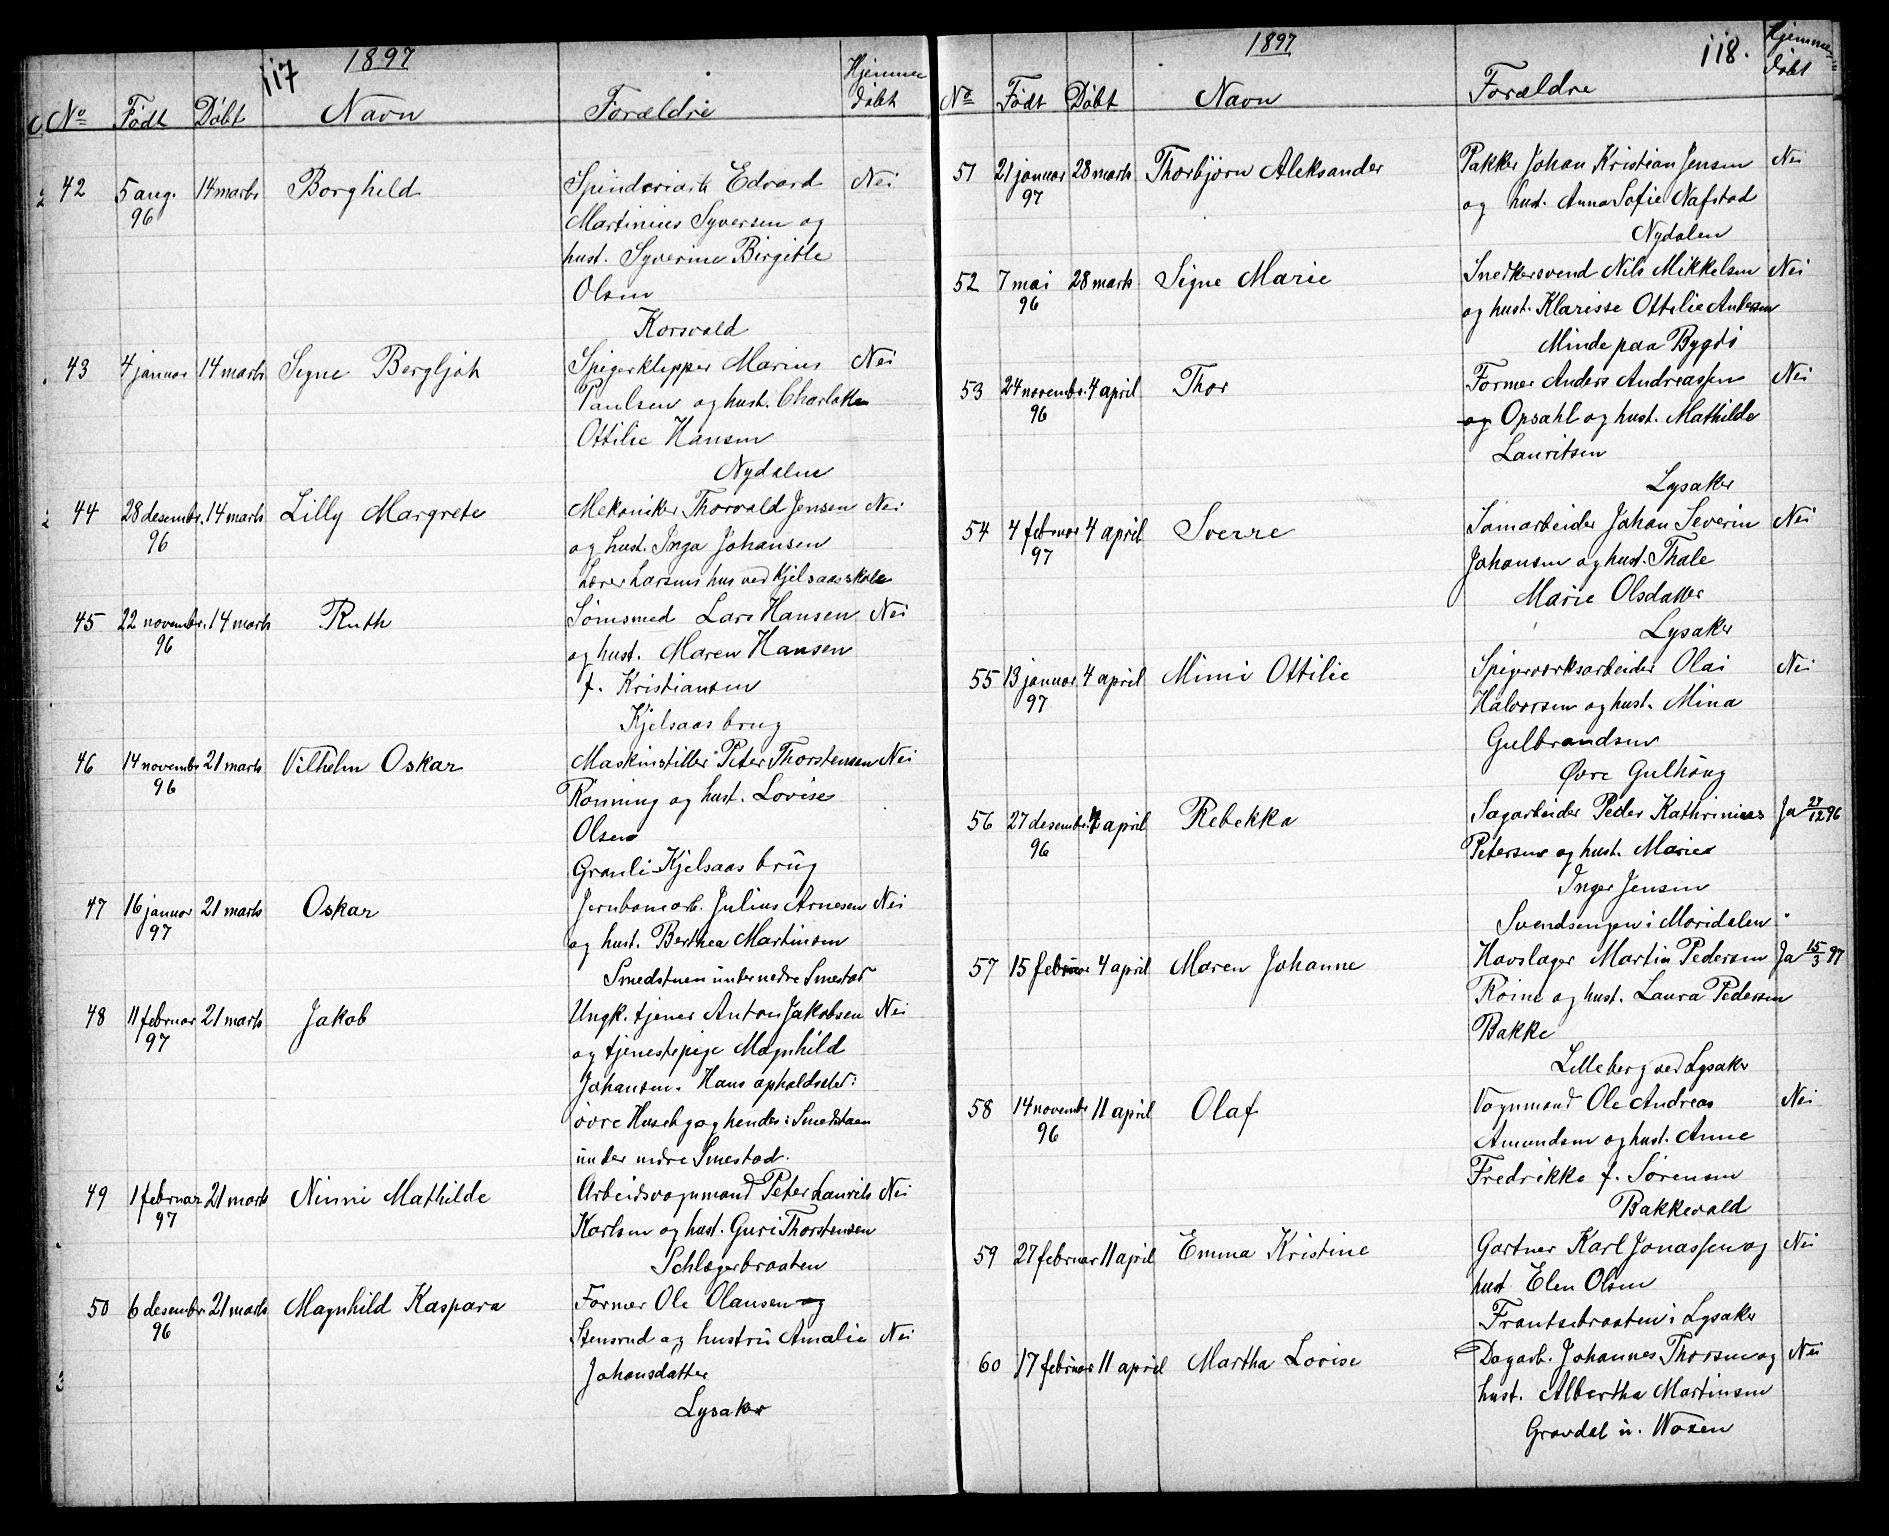 117 1897
Hjemme
døbt
No Født Døbt Navn Forældre
42 5 aug. 14 marts Borghild Spinderiarb. Edvard Nei
96 Martinius Syversen og
hust. Syverine Birgitte
Olsen
Korsvold
43 4 januar 14 marts Signe Bergljot Spigerklipper Marius Nei
Paulsen og hust. Charlotte
Ottilie Hansen
Nydalen
44 28 desembr. 14 marts Lilly Margrete Mekaniker Thorvald Jensen Nei
96 og hust. Inga Johansen
Lærer Larsens hus ved Kjelsaas skole
45 22 novembr. 14 marts Ruth Sømsmed Lars Hansen Nei
96 og hust. Maren Hansen
f. Kristiansen
Kjelsaas brug
46 14 novembr 21 marts Vilhelm Oskar Maskinstiller Peter Thorstensen Nei
96 Rønning og hust. Lovise
Olsen
Granli Kjelsaas brug
47 16 januar 21 marts Oskar Jernbanearb. Julius Arnesen Nei
97 og hust. Berthea Martinsen
Smedstuen under nedre Smestad
48 11 februar 21 marts Jakob Ungk. tjener Anton Jakobsen Nei
97 og tjenestepige Magnhild
Johansen. Hans opholdsted:
øvre Huseby og hendes: Smedstuen
under nedre Smestad.
49 1 februar 21 marts Ninni Mathilde Arbeidsvognmand Peter Laurits Nei
97 Karlsen og hust. Guri Thorstensen
Schlagerbraaten
50 6 desembr 21 marts Magnhild Kaspara Former Ole Olausen og
96 Stensrud og hustru Amalie Nei
Johansdatter
Lysaker
1897 118.
Hjemme
døbt
No Født Døbt Navn Forældre
51 21 januar 28 marts Thorbjørn Aleksander Pakker Johan Kristian Jensen Nei
97 og hust. Anna Sofie Nafstad
Nydalen
52 7 mai 28 marts Signe Marie Snedkersvend Nils Mikkelsen Nei
96 og hust. Klarisse Ottilie Andersen
Minde paa Bygdø
53 24 novembr. 4 april Thor Former Anders Andreassen Nei
96 og Opsahl og hust. Mathilde
Lauritsen
Lysaker
54 4 februar 4 april Sverre Sømarbeider Johan Severin Nei
97 Johansen og hust. Thale
Marie Olsdatter
Lysaker
55 13 januar 4 april Mimi Ottilie Spigerverksarbeider Olai Nei
97 Halvorsen og hust. Mina
Gulbrandsen
Øvre Gulhaug
56 27 desembr. 4 april Rebekka Sagarbeider Peder Kathrinius Ja 29/12 96
96 Petersen og hust. Marie
Inger Jensen
Svendsengen i Maridalen
57 15 februar 4 april Maren Johanne Hovslager Martin Pedersen Ja 15/3 97
Roine og hust. Laura Pedersen
Bakke
Lilleberg ved Lysaker
58 14 novembr 11 april Olaf Vognmand Ole Andreas Nei
96 Amundsen og hust. Anne
Fredrikke f. Sørensen
Bakkevold
59 27 februar 11 april Emma Kristine Gartner Karl Jonassen og Nei
hust Elen Olsen
Frantsebraaten i Lysaker
60 17 februar 11 april Martha Lovise Dagarb. Johannes Thorsen og Nei
hust. Albertha Martinsen
Gravdal u. Voxen